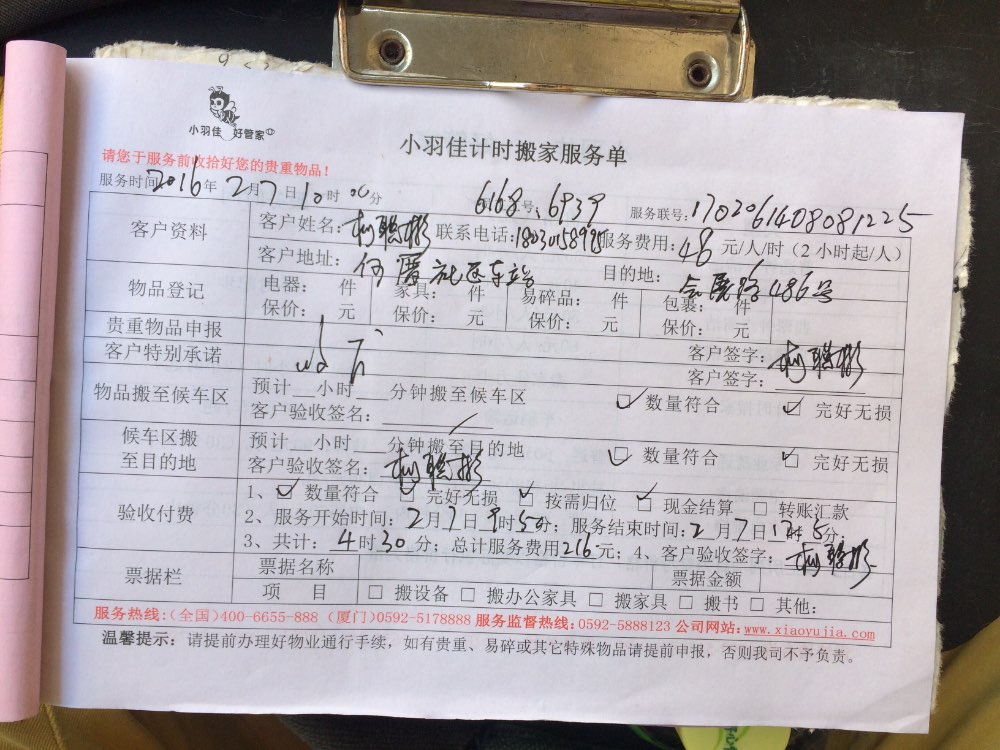 小羽佳 好管家
小羽佳计时搬家服务单
请您于服务前收拾好您的贵重物品！
服务时间2016年2月7日10时00分 6168号、6939 服务联号：170206140808 1225
客户资料 客户姓名：柯聪彬 联系电话：服务费用：48元/人/时（2小时起/人）
客户地址：何厝社区车站 目的地：会展路486号
物品登记 电器： 件 家具： 件 易碎品： 件 包裹： 件
保价： 元 保价： 元 保价： 元 保价： 元
贵重物品申报 客户签字：柯聪彬
客户特别承诺 客户签字：
物品搬至候车区 预计 小时 分钟搬至候车区 ☑数量符合 ☑完好无损
客户验收签名：
候车区搬至目的地 预计 小时 分钟搬至目的地 ☑数量符合 ☑完好无损
客户验收签名：柯聪彬
验收付费 1、☑数量符合 ☑完好无损 ☑按需归位 ☑现金结算 □转账汇款
2、服务开始时间：2月7日9时50分；服务结束时间：2月7日时分
3、共计：4时30分；总计服务费用216元；4、客户验收签字：柯聪彬
票据栏 票据名称 票据金额
项 目 □搬设备 □搬办公家具 □搬家具 □搬书 □其他：
服务热线：（全国）400-6655-888（厦门）0592-5178888 服务监督热线：0592-5888123 公司网站：www.xiaoyujia.com
温馨提示：请提前办理好物业通行手续，如有贵重、易碎或其它特殊物品请提前申报，否则我司不予负责。